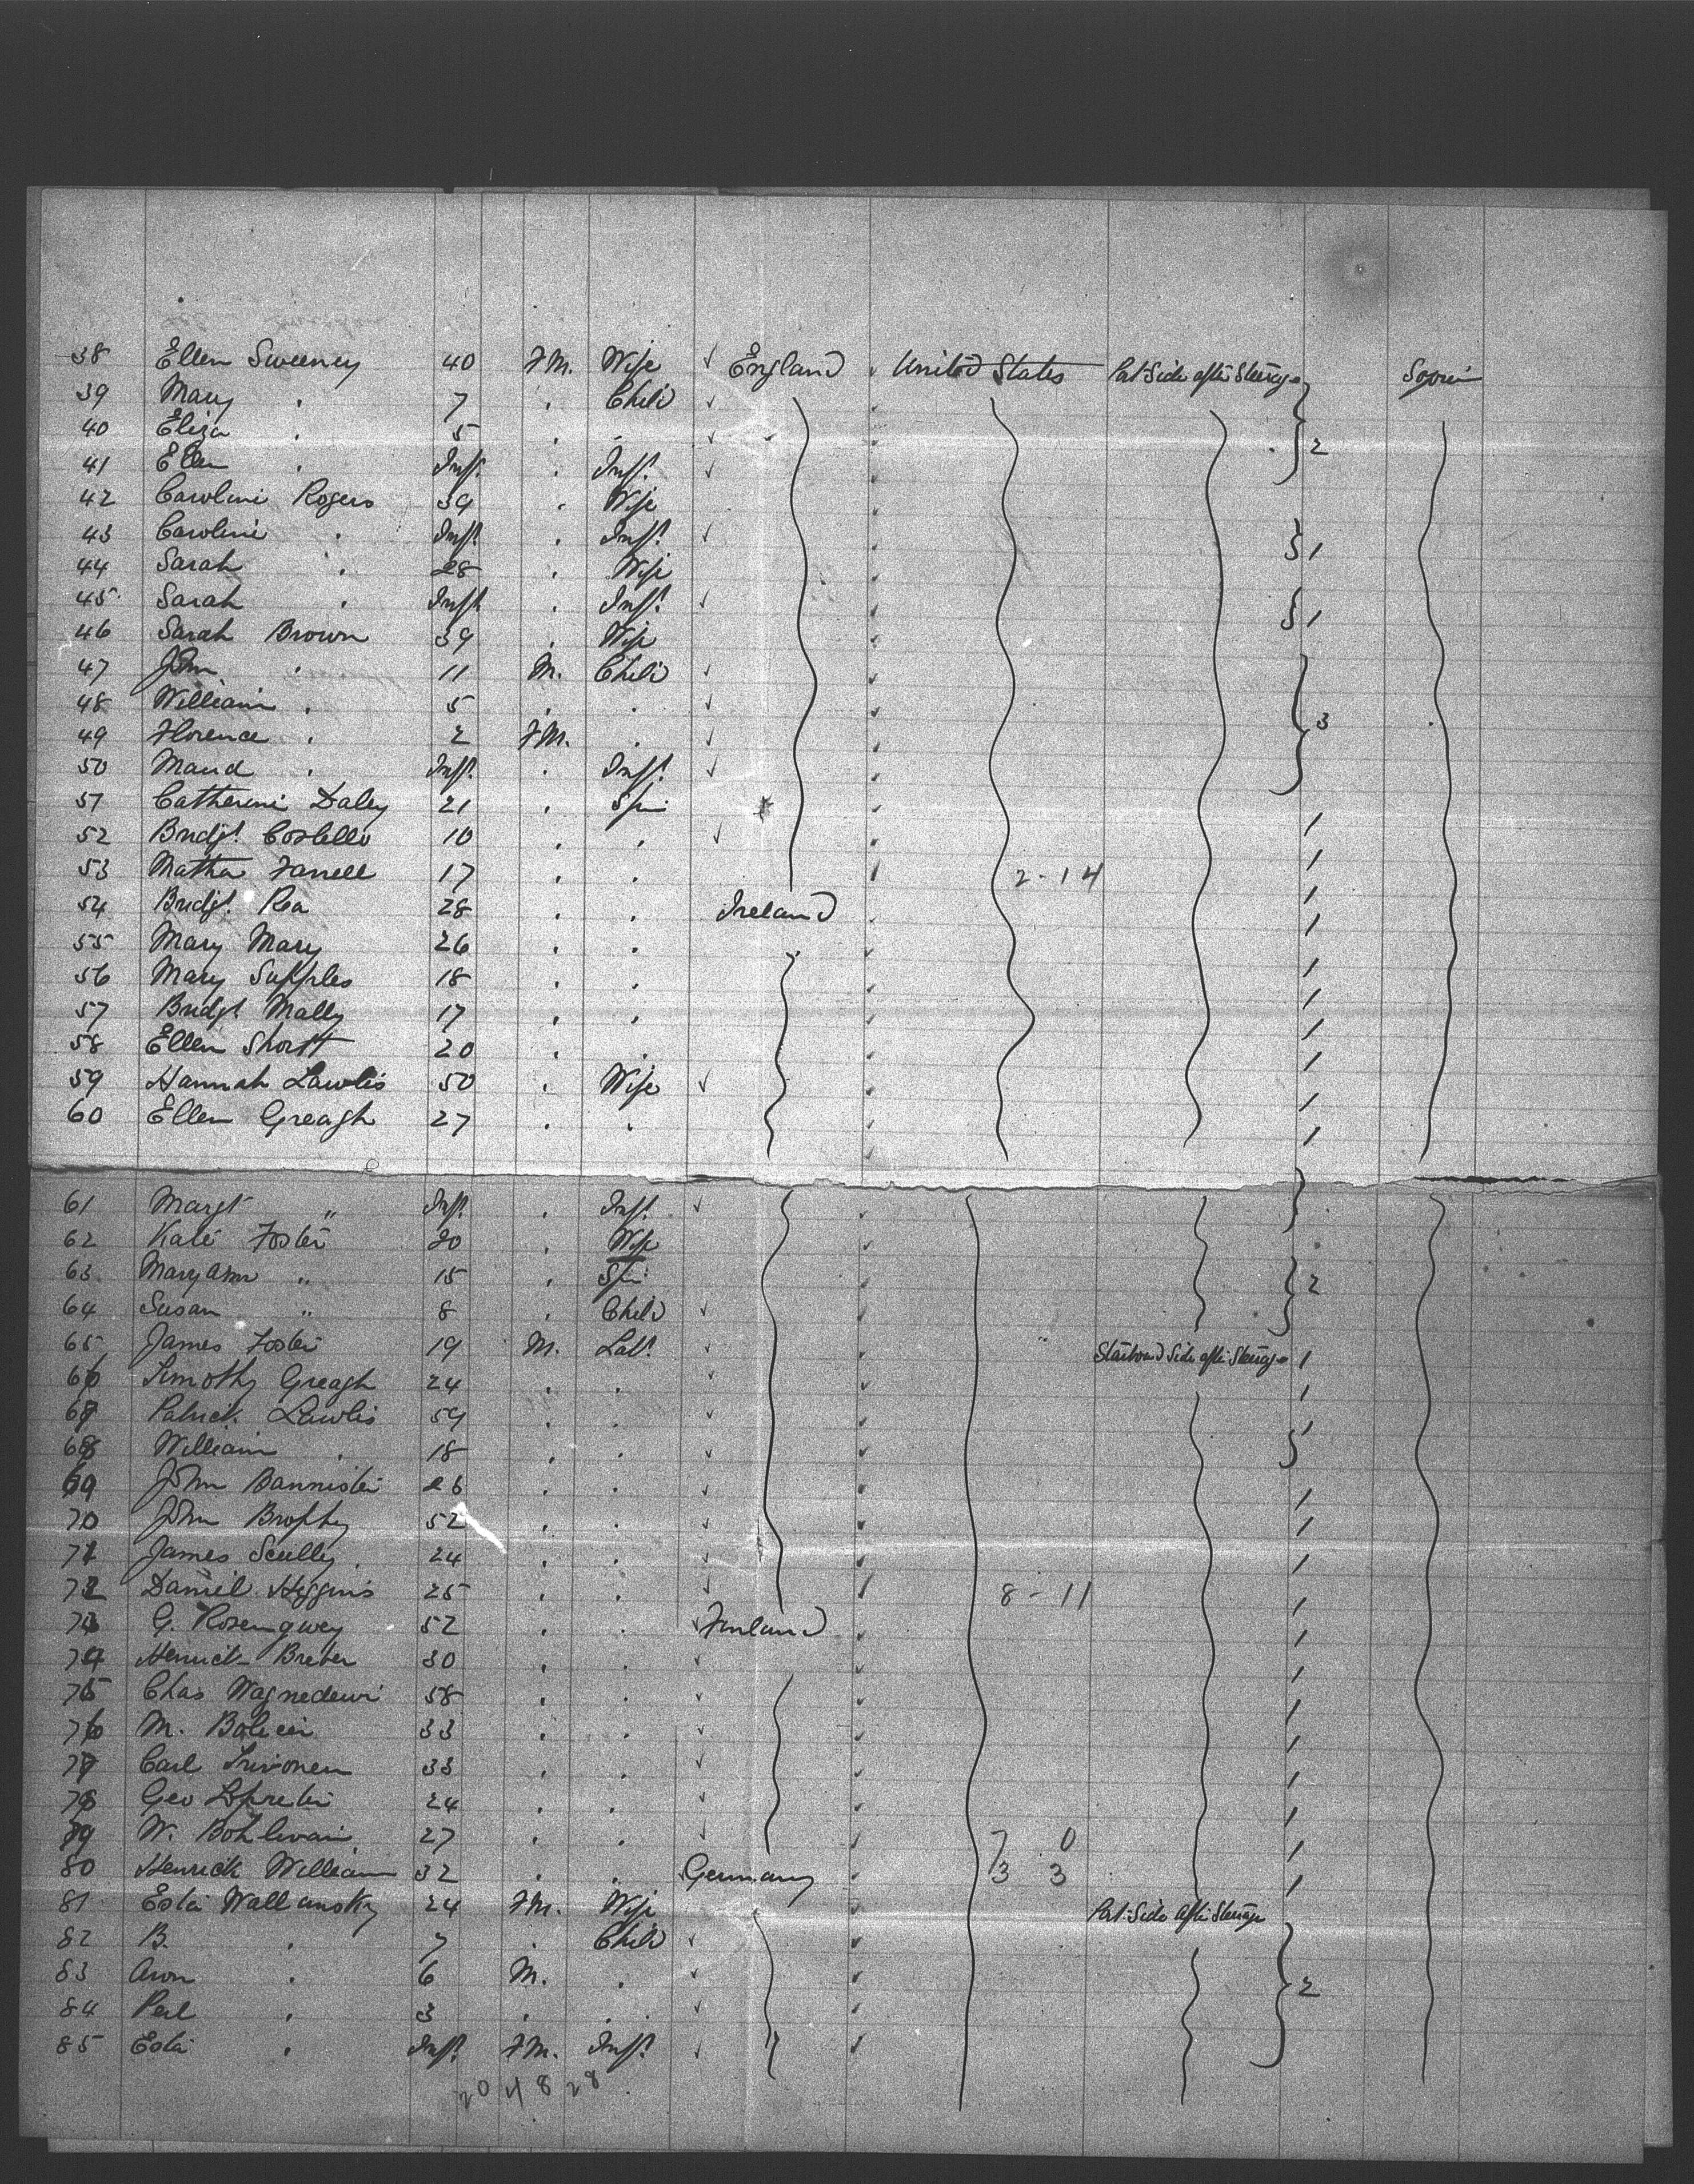 38 Ellen Sweeney 40 FM. Wife ✓ England ✓ United States Port Side after Steerage
39 Mary . 7 . Child ✓
40 Eliza . 5 . . ✓ 2
41 Ellen . Inft. . Inft. ✓
42 Caroline Rogers 39 . Wife
43 Caroline . Inft. . Inft. ✓ 1
44 Sarah . 28 . Wife
45 Sarah . Inft . Inft. ✓ 1
46 Sarah Brown 39 . Wife
47 John . 11 M. Child ✓
48 William . 5 . . ✓
49 Florence . 2 FM. . ✓ 3
50 Maud . Inft. . Inft. ✓
51 Catherine Daley 21 . Spin
52 Bridgt. Costello 10 . . ✓
53 Martha Farrell 17 . . 2-14
54 Bridgt. Rea 28 . . Ireland
55 Mary Mary 26 . .
56 Mary Supples 18 . .
57 Bridgt Mally 17 . .
58 Ellen Shortt 20 . .
59 Hannah Lawlis 50 . Wife ✓
60 Ellen Greagh 27 . .
61 Margt " Inft. . Inft. ✓
62 Kate Foster . Wife
63 Maryann " 15 . Spin 2
64 Susan " 8 . Child ✓
65 James Foster 19 M. Labr. ✓ Starboard Side after Steerage 1
66 Timothy Greagh 24 . . ✓
67 Patrick Lawlis 59 . . ✓
68 William . 18 . . ✓
69 John Bannister . . ✓
70 John Brophy 52 . . ✓
71 James Scully 24 . . ✓
72 Daniel Higgins 25 . . ✓ 8-11
73 G. 52 . . ✓ Finland
74 Henrick 30 . . ✓
75 Chas 58 . . ✓
76 M. 33 . . ✓
77 Carl 33 . . ✓
78 Geo 24 . . ✓
79 W. 27 . . ✓ 7 0
80 Henrick William 32 . . Germany 3 3
81 Ester Wallansky 24 FM. Wife Port Side after Steerage
82 B. . 7 . Child ✓
83 Aron . 6 M. . ✓
84 Perl . 3 . . ✓ 2
85 Ester . Inft. FM. Inft. ✓
20 4 8 28